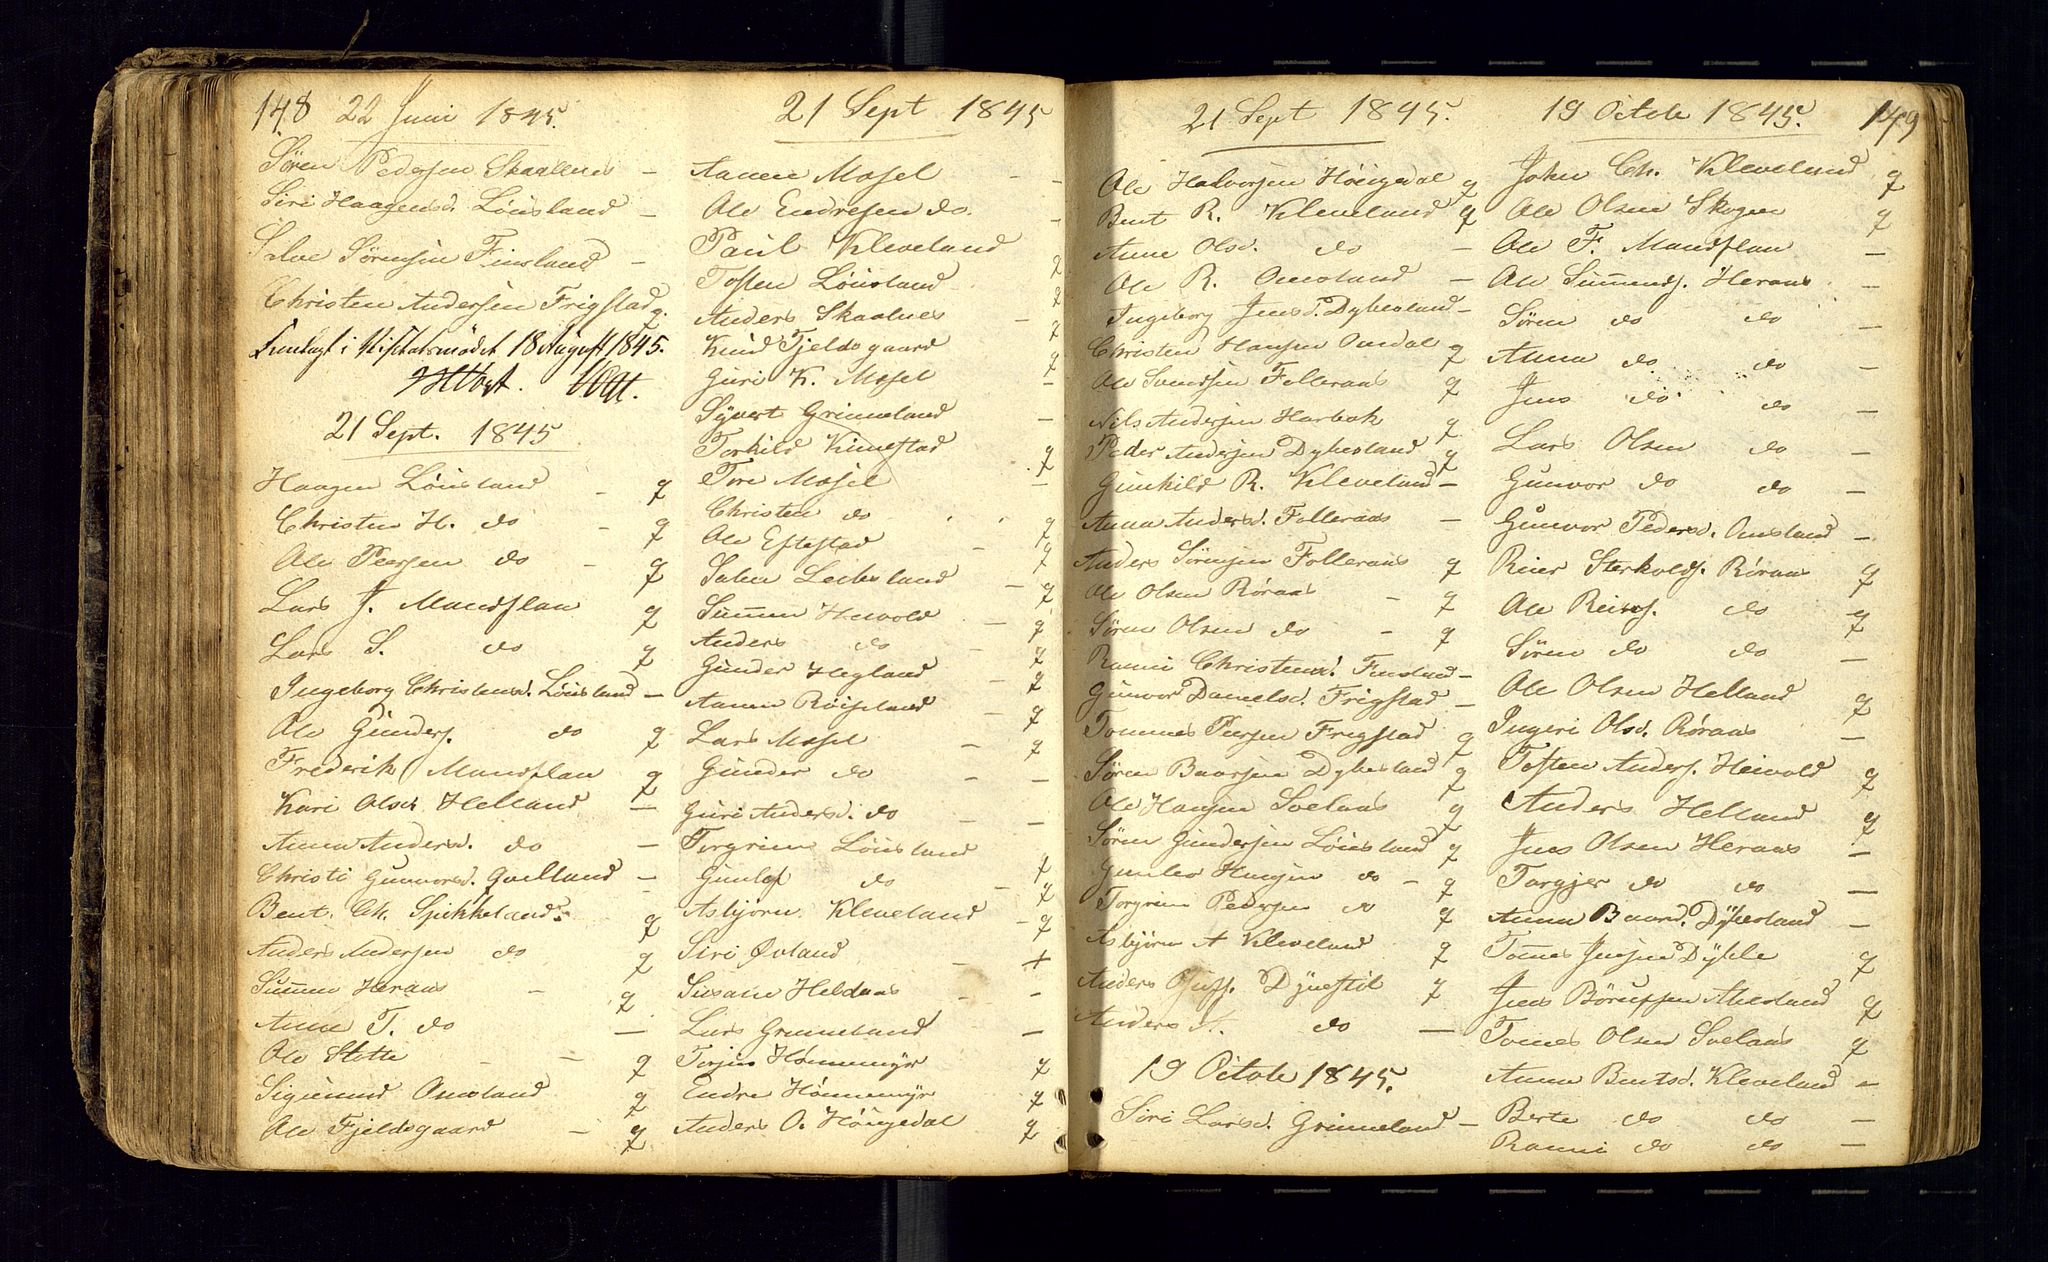 148 22 Juni 1845.
Sören Pedersen Skaalnes –
Siri Haagensd. Löüsland –
Salve Sörensen Finsland –
Christen Andersen Frigstad q
Fremlagt i Visitatsmödet 18 August 1845.
21 Sept. 1845
Haagen Löüsland – q
Christen H. do – q
Ole Peersen do – q
Lars J. Mandflau q
Lars S. do q
Ingeborg Christensd. Löüsland –
Ole Günders. do q
Frederik Mandflau q
Kari Olsd. Helland –
Anna Andersd. do –
Christi Gunvorsd. Qvelland –
Bent Ch. Spikkeland q
Anders Andersen do q
Sümen Heraas – q
Anne T. do –
Ole Stette – – q
Sigimund Omsland q
Ole Fjeldsgaard – q
21 Sept 1845
Aanen Mosel – –
Ole Endresen do. –
Paul Kleveland q
Tosten Löüsland q
Anders Skaalnes – q
Knüd Fjeldsgaard q
Güri K. Mosel –
Syvert Grimeland –
Torkild Kimestad q
Tore Mosel –
Christen do q
Ole Eftestad – q
Salve Lechsland – q
Sümen Heivold – q
Anders do – q
Günder Hegland – q
Aanen Röiseland – q
Lars Mosel – q
Günder do – –
Güri Andersd. do – –
Torgrim Löüsland q
Gunlef do – q
Asbjörn Kleveland – q
Siri Övland – +
Susane Heldaas – –
Lars Grimeland –
Torjus Hömmemyr q
Endre Hömmemyr q
Anders O. Höügedal q
21 Sept 1845.
Ole Halvorsen Höügedal q
Bent R. Kleveland q
Anne Olsd. do –
Ole R. Omsland –
Ingeborg Jensd. Dybesland –
Christen Hansen Omdal q
Ole Svendsen Folleraas q
Nils Andersen Harbak q
Peder Andersen Dybesland q
Gunhild R. Kleveland –
Anna Andersd. Folleraas –
Anders Sörensen Folleraas q
Ole Olsen Röraas – q
Sören Olsen do – q
Ranni Christensd. Finsland –
Günvor Danielsd. Frigstad –
Tommes Peersen Frigstad q
Sören Baarsen Dybesland q
Ole Hansen Svelaas q
Sören Gundersen Löüsland q
Gunlev Haagen do – q
Torgrim Pedersen do q
Asbjörn A Kleveland q
Anders Dynestil q
Anders A. do –
19 Octobe 1845.
Siri Larsd. Grimeland –
19 Octobe 1845. 149
John Ch. Kleveland q
Ole Olsen Skogen q
Ole F. Mandflau –
Ole Sümends. Heraas –
Sören do do –
Anna do do –
Jens do do –
Lars Olsen do –
Gunvor do do –
Gunvor Pedersd. Omsland –
Reier Sterkolds. Röraas q
Ole Reiers. do q
Sören do do –
Ole Olsen Helland q
Ingeri Olsd. Röraas –
Tosten Anders. Heivold q
Anders Helland q
Jens Olsen Heraas –
Torgjer do do –
Anna Baard. Dybesland –
Tomes Jensen Dyble q
Jens Börüfsen Akesland q
Tomes Olsen Svelaas q
Anna Bentsd. Kleveland –
Berte do do –
Ranni do do –